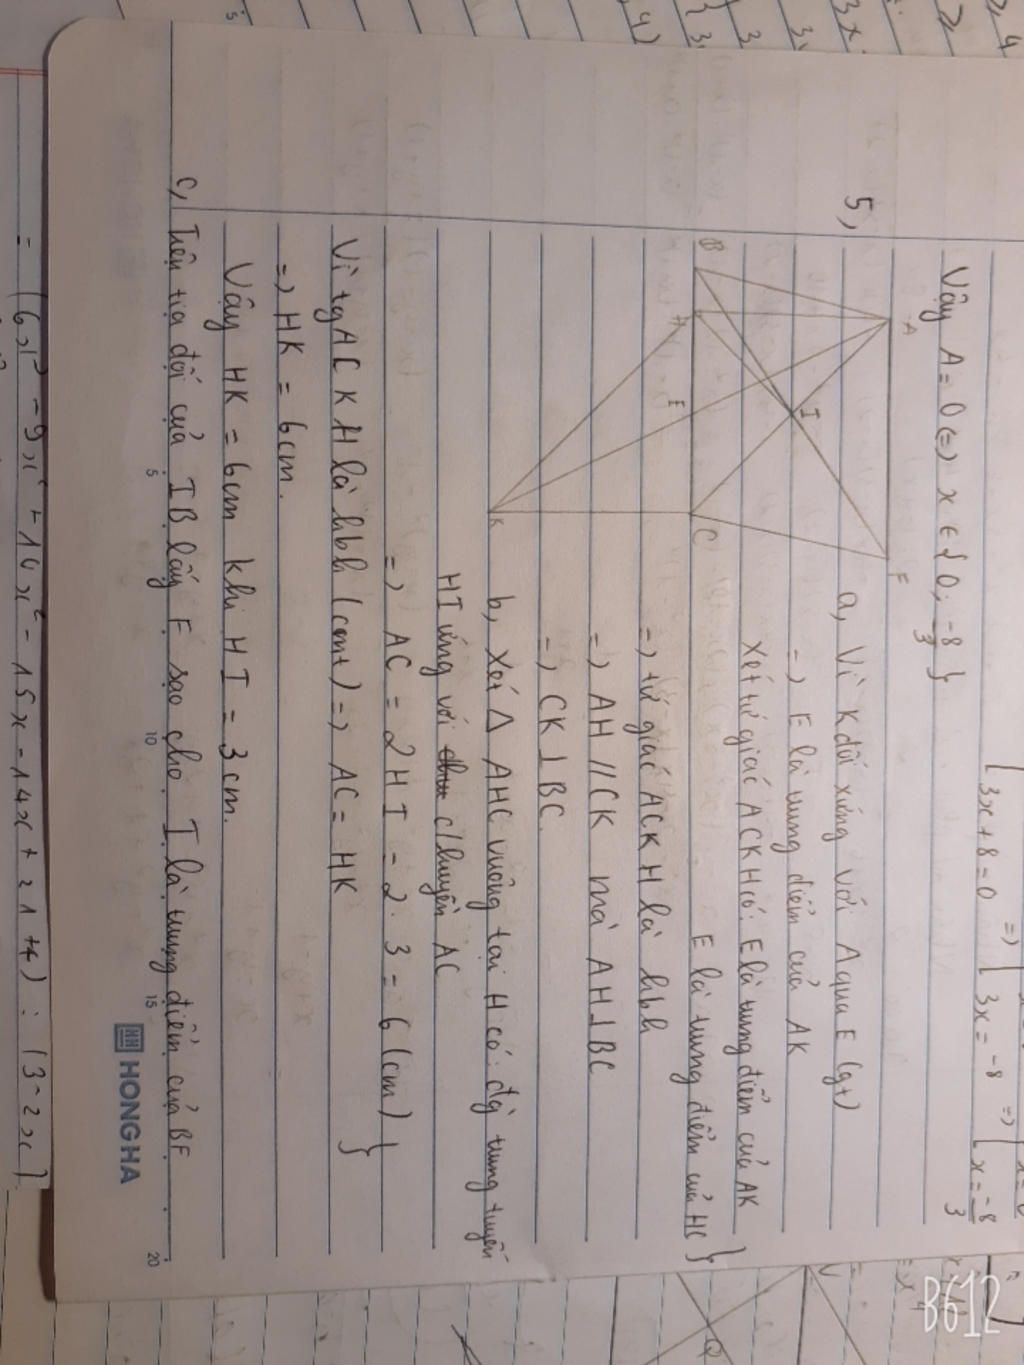 3x+8=0 => [ 3x = -8 => [ x = -8
3
Vậy A = 0 <=> x ∈ { 0; -8/3 }
5,
A
F
I
B
H
E
C
K
a, Vì K đối xứng với A qua E (gt)
=> E là trung điểm của AK
Xét tứ giác ACKH có: E là trung điểm của AK
E là trung điểm của HC }
=> tứ giác ACKH là hbh
=> AH // CK mà AH ⊥ BC
=> CK ⊥ BC.
b, Xét Δ AHC vuông tại H có: đg trung tuyến
HI ứng với c/huyền AC
=> AC = 2HI = 2.3 = 6 (cm) }
Vì tg ACKH là hbh (cmt) => AC = HK
=> HK = 6cm.
Vậy HK = 6cm khi HI = 3cm.
c, Trên tia đối của IB lấy F sao cho I là trung điểm của BF.
5 10 15 20
HH HONG HA
- 9x² + 14x² - 15x - 14x + 21 + 4) : (3 - 2x)
B612